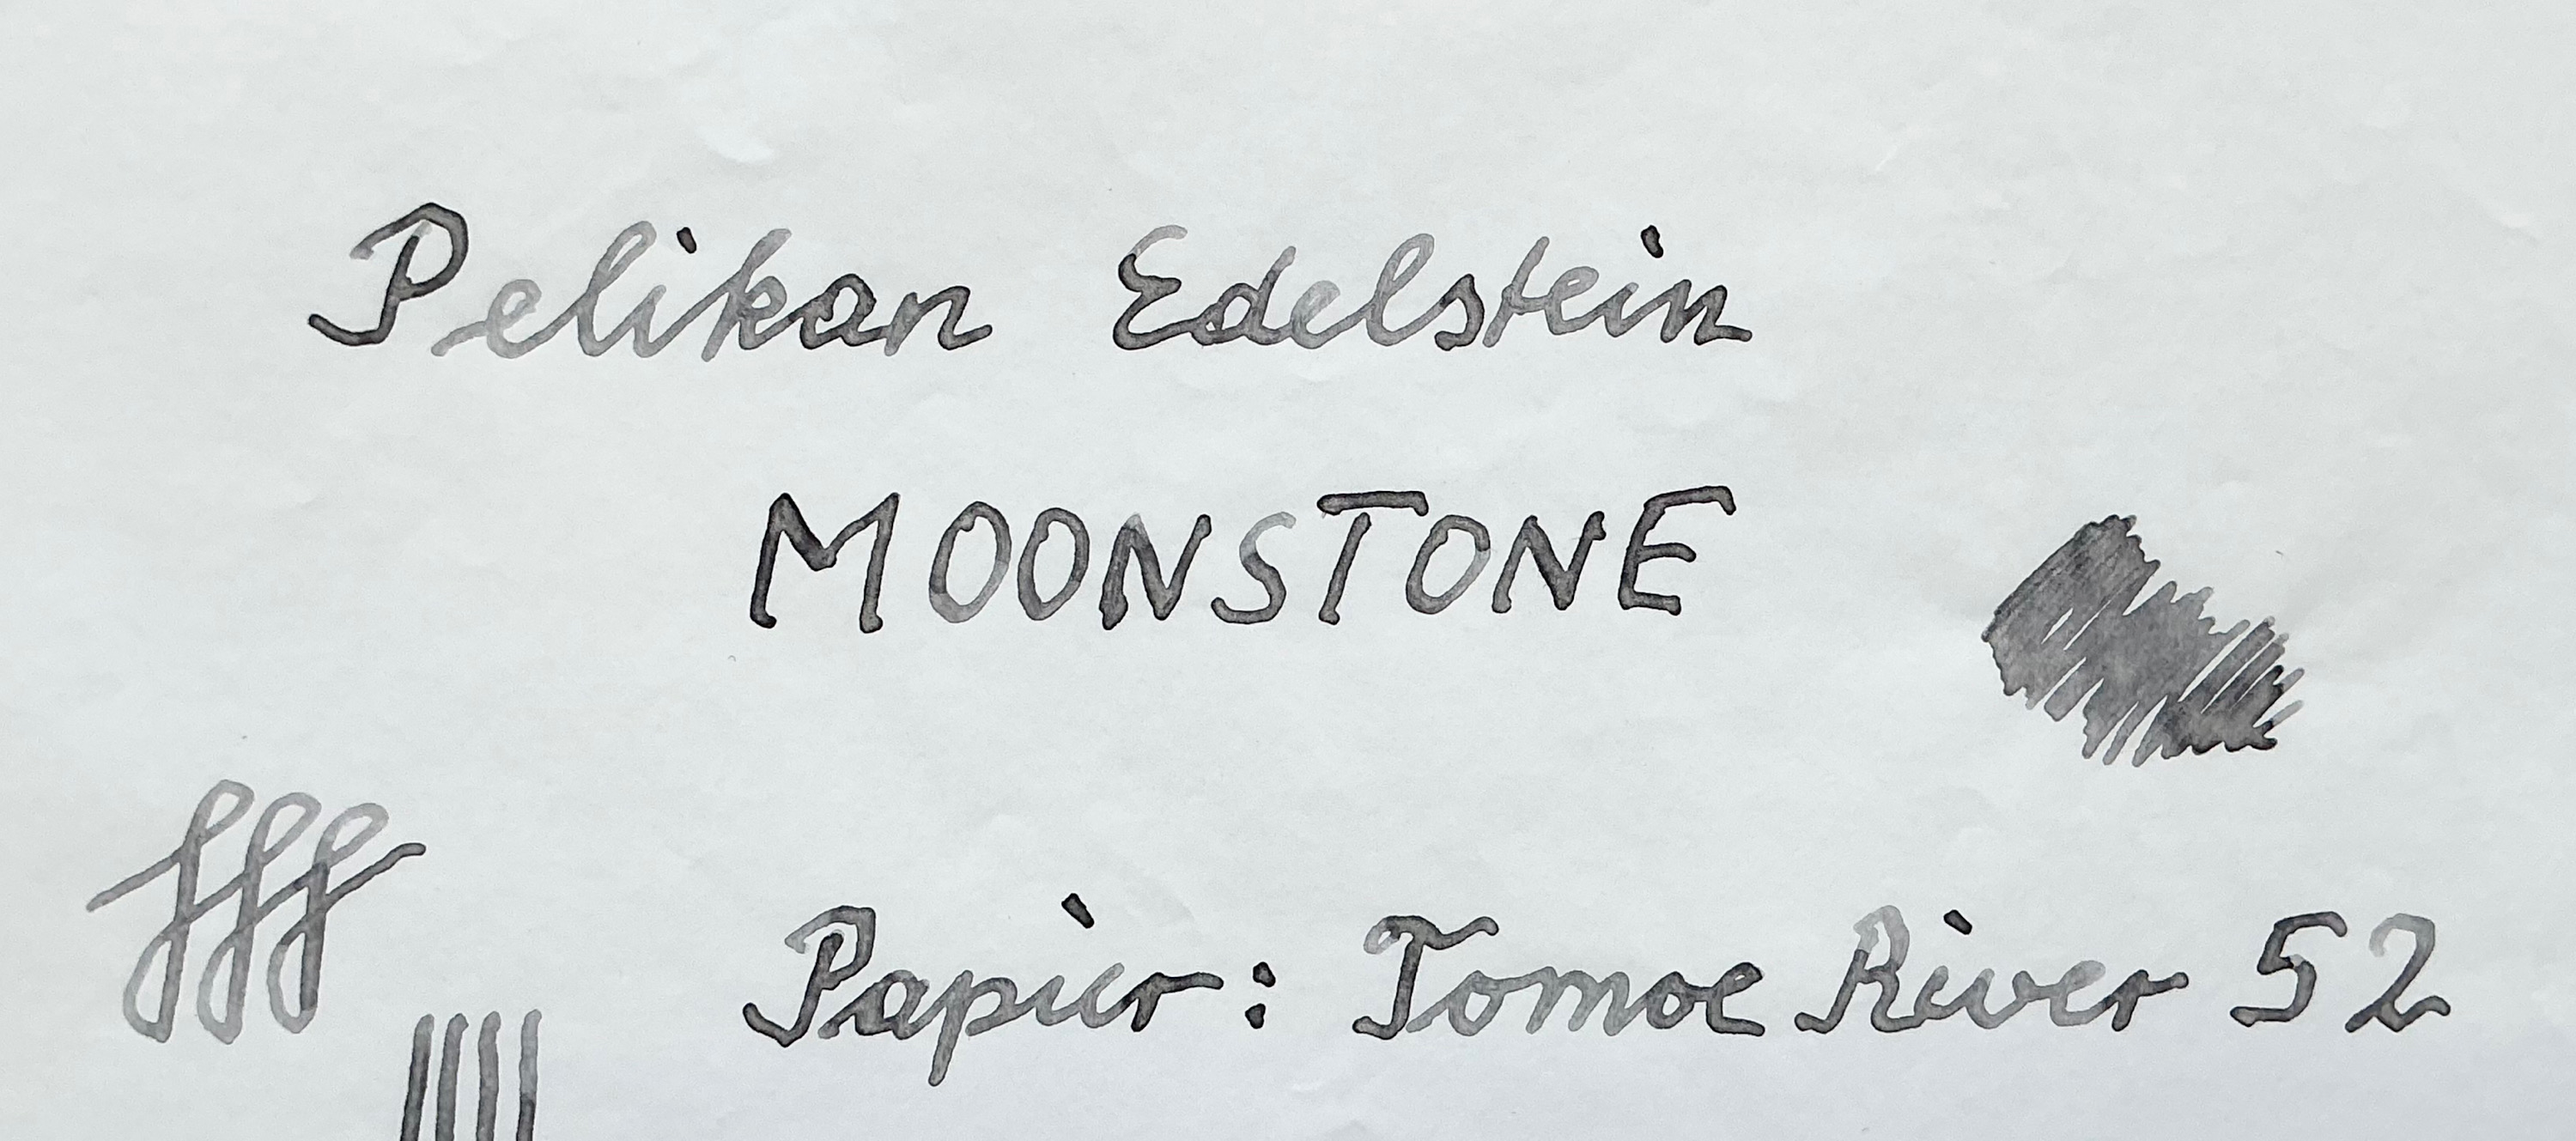 Pelikan Edelstein
MOONSTONE
fff
Papier: Tomoe River 52